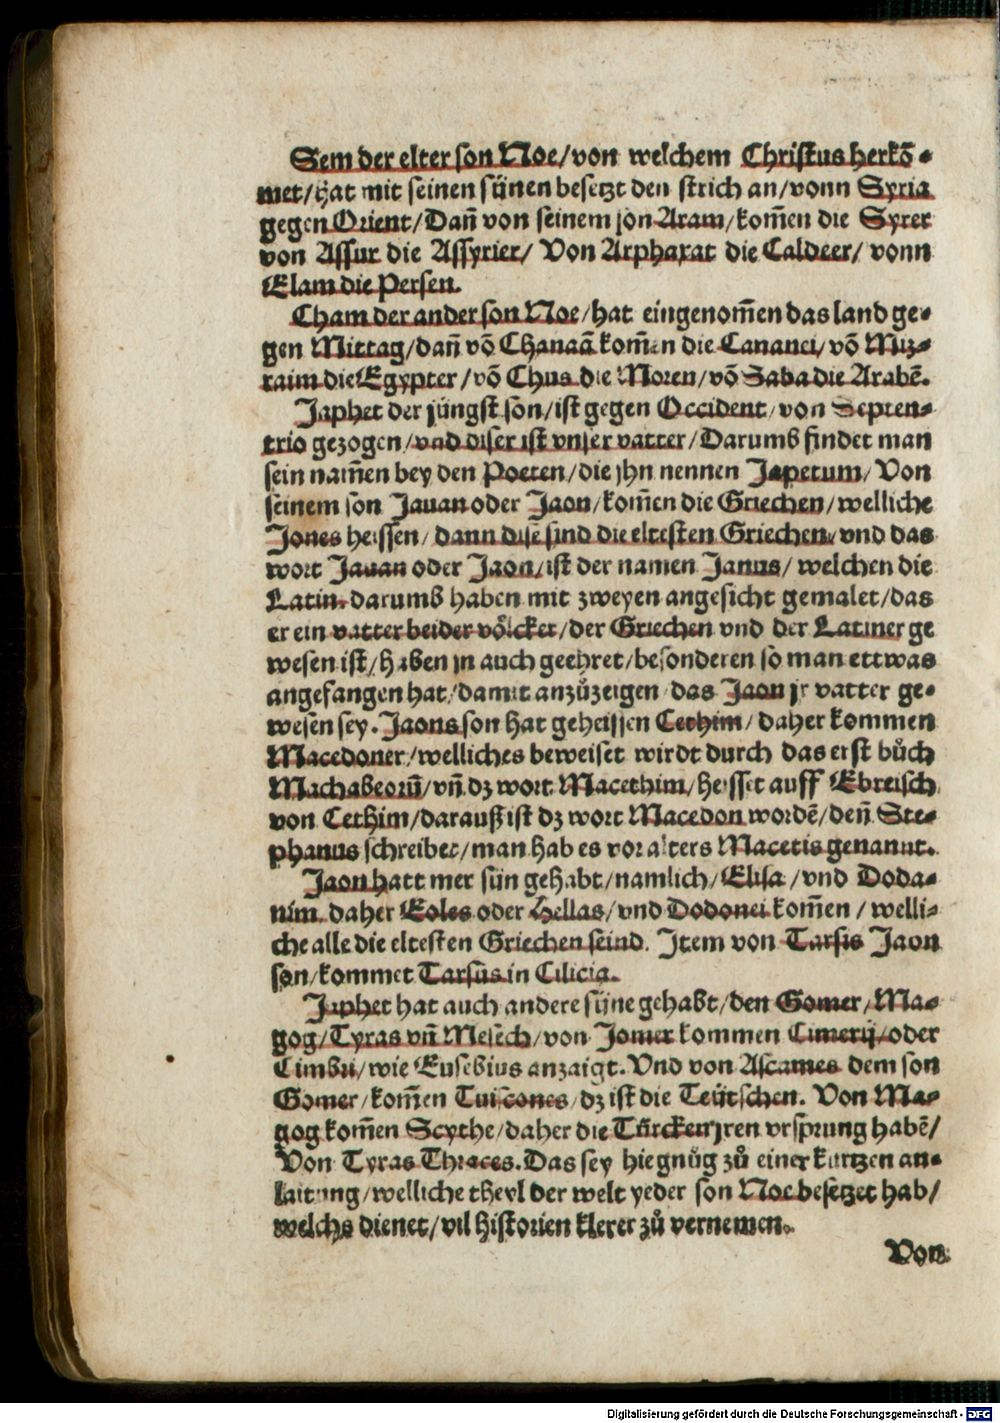 Sem der elter son Noe/von welchem Christus herkõ-
met/hat mit seinen sünen besetzt den strich an/vonn Syria
gegen Orient/Dañ von seinem son Aram/kom̃en die Syrer
von Assur die Assyrier/ Von Arphaxat die Caldeer/ vonn
Elam die Persen.
Cham der ander son Noe/hat eingenom̃en das land ge-
gen Mittag/dañ võ Chanaã kom̃en die Cananei/võ Miz-
raim die Egypter/võ Chus die Moren/võ Saba die Arabẽ.
Japhet der jüngst son/ist gegen Occident/von Septen-
trio gezogen/vnd diser ist vnser vatter/Darumb findet man
sein nam̃en bey den Poeten/die jhn nennen Japetum/ Von
seinem son Jauan oder Jaon/kom̃en die Griechen/welliche
Jones heissen/ dann dise sind die eltesten Griechen/vnd das
wort Jauan oder Jaon/ist der namen Janus/ welchen die
Latin darumb haben mit zweyen angesicht gemalet/das
er ein vatter beider völcker/der Griechen vnd der Latiner ge
wesen ist/haben jn auch geehret/besonderen so man ettwas
angefangen hat/damit anzůzeigen das Jaon jr vatter ge-
wesen sey. Jaons son hat geheissen Cethim/daher kommen
Macedoner/welliches beweiset wirdt durch das erst bůch
Machabeorũ/vñ dz wort Macethim/heisset auff Ebreisch
von Cethim/darauß ist dz wort Macedon wordẽ/deñ Ste-
phanus schreibet/man hab es vor alters Macetis genannt.
Jaon hatt mer sün gehabt/namlich/Elisa/vnd Doda-
nim daher Eoles oder Hellas/vnd Dodonei kom̃en/welli-
che alle die eltesten Griechen seind. Jtem von Tarsis Jaon
son/kommet Tarsus in Cilicia.
Japhet hat auch andere süne gehabt/den Gomer/Ma-
gog/Tyras vñ Mesech/von Jomer kommen Cimerij/oder
Cimbri/wie Eusebius anzaigt. Vnd von Ascames dem son
Gomer/kom̃en Tuiscones/dz ist die Teütschen. Von Ma-
gog kom̃en Scythe/daher die Türcken jren vrsprung habẽ/
Von Tyras Thraces. Das sey hie gnůg zů einer kurtzen an-
laitung/welliche theyl der welt yeder son Noe besetzet hab/
welchs dienet/vil Historien klerer zů vernemen.
Von
Digitalisierung gefördert durch die Deutsche Forschungsgemeinschaft - DFG